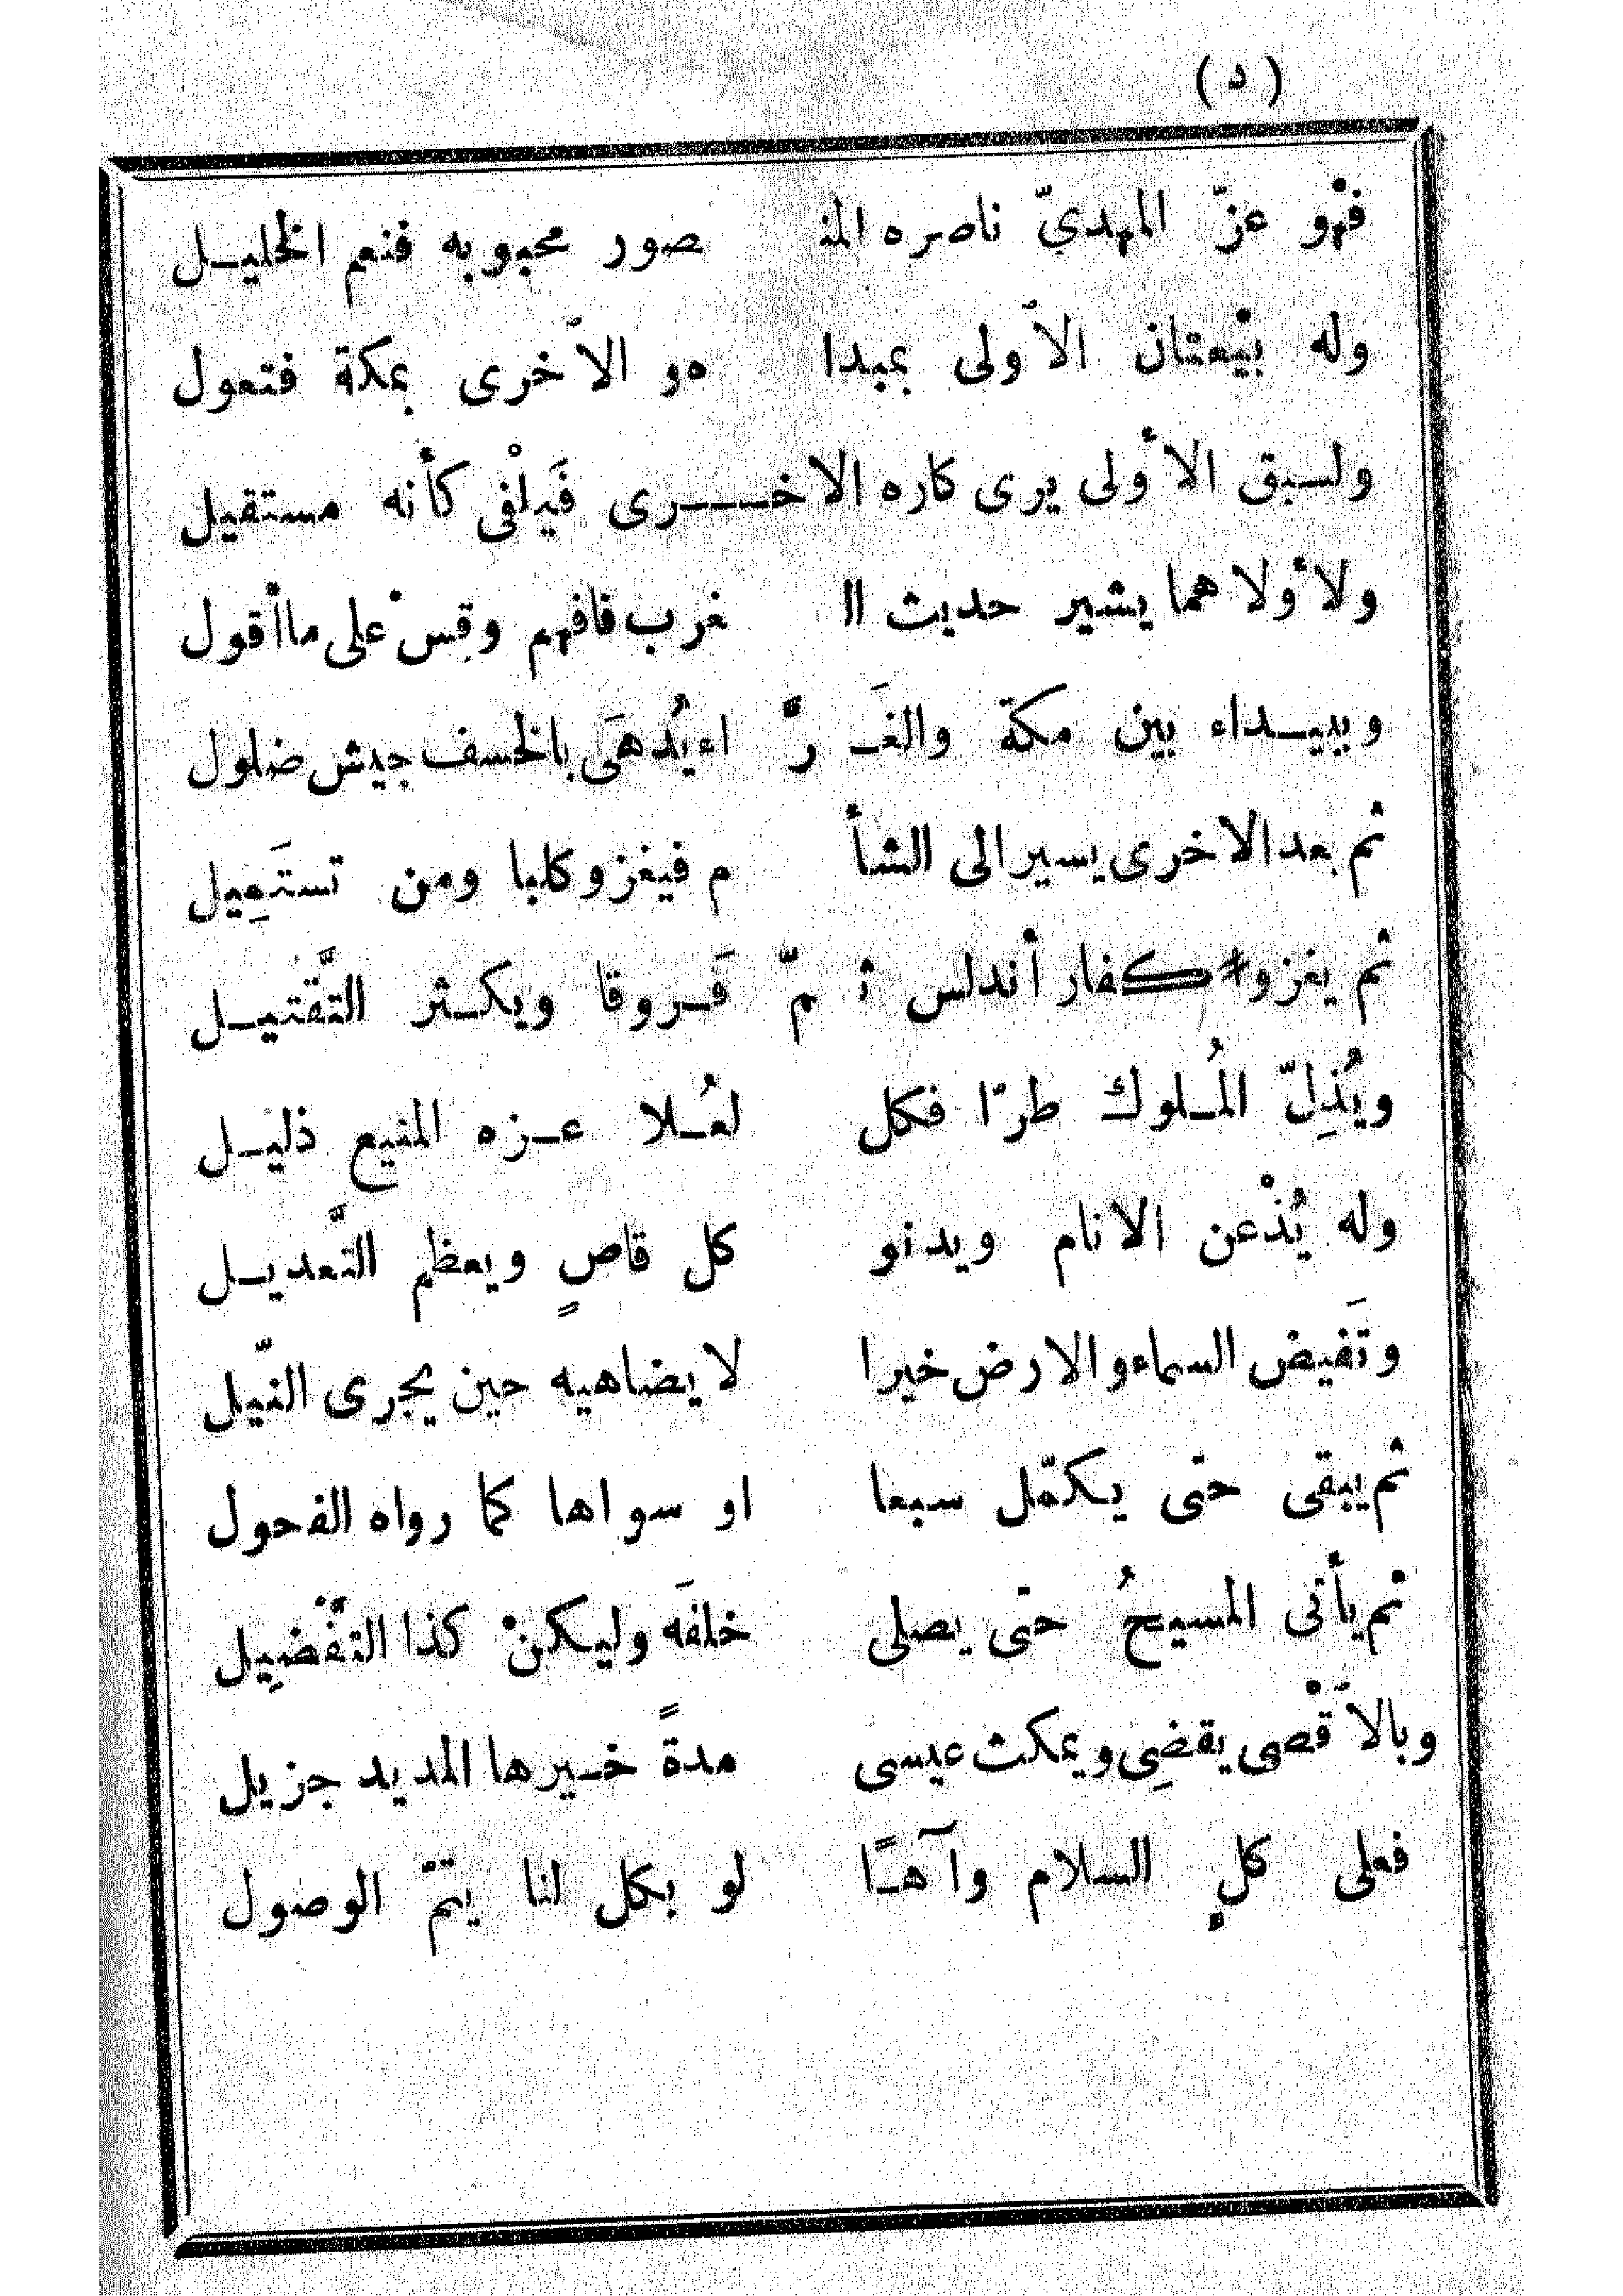 ( د )
فهْو عزّ المهديّ ناصره المنـ صور محبوبه فنعم الخليـل
وله بيْعتان الاٌولى بمبدا ه و الاٌخرى بمكة فتعول
ولسـبق الأولى يرى كاره الاخــــرى فَيلْفى كأنه مستقيل
ولأولاهما يشير حديث ال غرب فافهم وقسْ على ماأقول
وببيـداء بين مكة والغَـ رَّ اء يُدهَى بالخسف جيش ضلول
ثم بعد الاخرى يسير الى الشأ م فيغزو كلبا ومن تستَمِيل
ثم يغزو كفار أندلس ثـ مّ فَـروقا ويكـثر التَّقتيـل
ويُذِلّ المُـلوك طرّا فكل لعُـلا عـزه المنيع ذليـل
وله يُذْعن الانام ويدنو كل قاصٍ ويعظم التَّعديـل
وتَفيض السماء والارض خيرا لا يضاهيه حين يجرى النّيل
ثم يبقى حتى يكمّل سبعا او سواها كما رواه الفحول
ثم يأتى المسيحُ حتى يصلى خلفَه وليكنْ كذا التَّفْضِيل
وبالاَقْصى يقضِى ويمكث عيسى مدةً خـيرها المديد جزيل
فعلى كلٍ السلام وآهـًا لو بكل لنا يتمّ الوصول